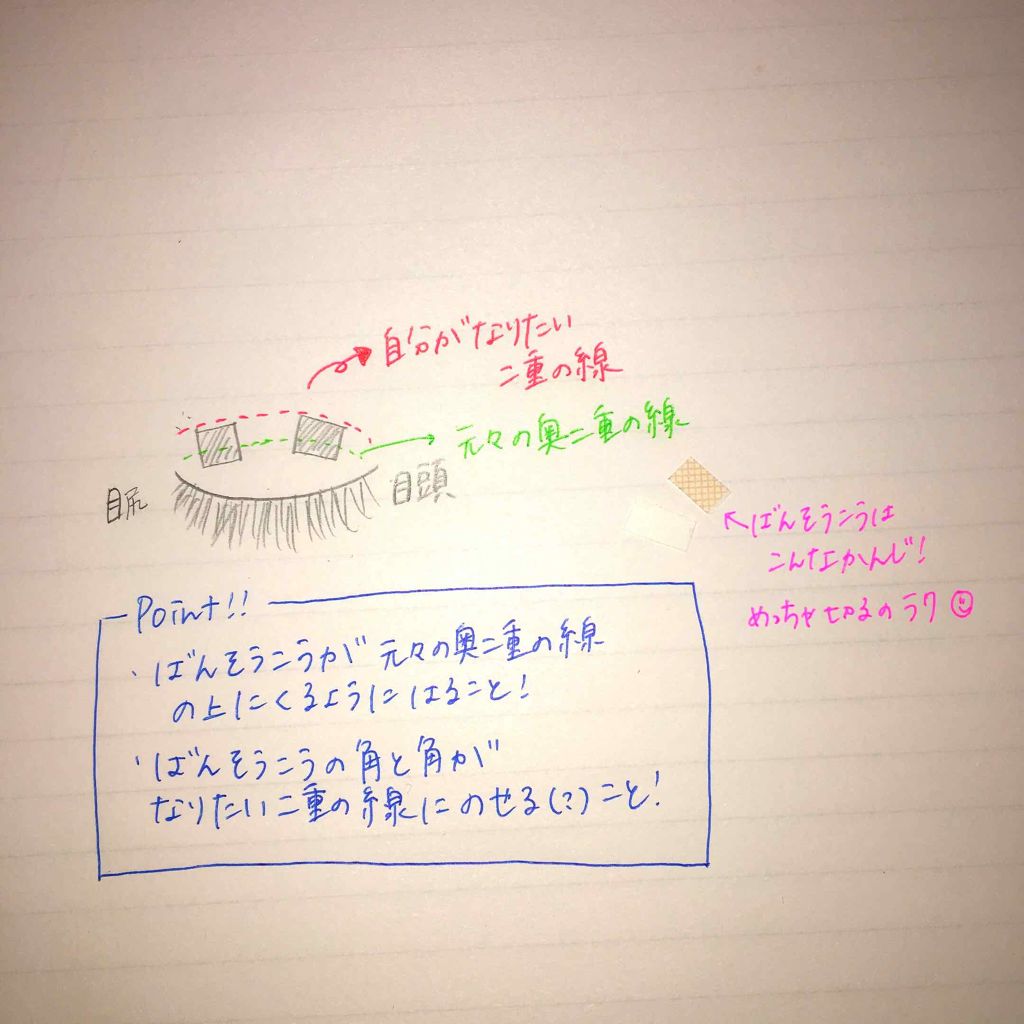 自分がなりたい
二重の線
元々の奥二重の線
目尻
目頭
↖ばんそうこうは
こんなかんじ!
めっちゃ切るのラク☺
Point!!
・ばんそうこうが元々の奥二重の線
の上にくるようにはること!
・ばんそうこうの角と角が
なりたい二重の線にのせる(?)こと!